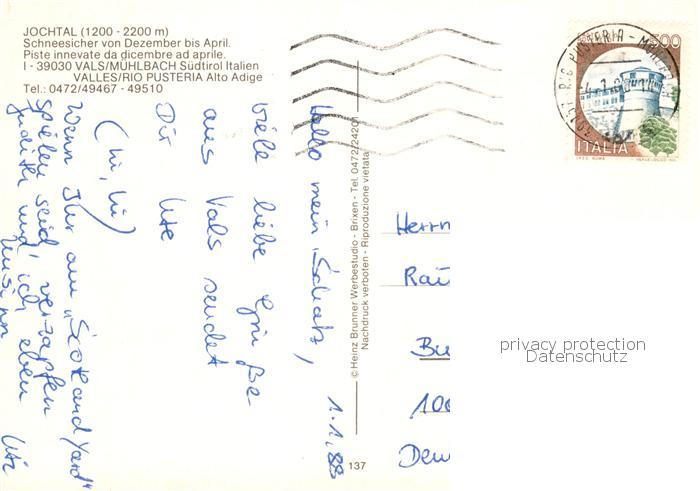 JOCHTAL (1200 - 2200 m)
Schneesicher von Dezember bis April.
Piste innevate da dicembre ad aprile.
I - 39030 VALS/MÜHLBACH Südtirol Italien
VALLES/RIO PUSTERIA Alto Adige
Tel.: 0472/49467 - 49510
1.1.88
Hallo mein Schatz,
viele liebe Grüße
aus Vals sendet
Dir Ute
(hi, hi)
Wenn Ihr am "Scotland Yard"
spielen seid, verzapfen
Judith und ich eben
Unsinn Ute
© Heinz Brunner Werbestudio - Brixen - Tel. 0472/24201
Nachdruck verboten - Riproduzione vietata
137
Herrn
Rai
Bu
100
Deu
privacy protection
Datenschutz
RIO PUSTERIA - MÜHL
ITALIA